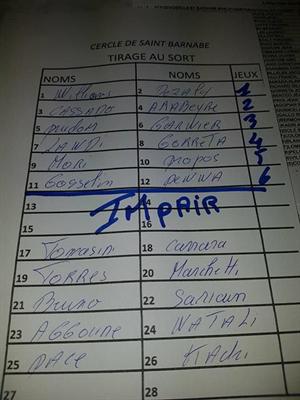 CERCLE DE SAINT BARNABE
TIRAGE AU SORT
NOMS NOMS JEUX
1 2 1
3 CASSANO 4 AMADEYRE 2
5 6 GARNIER 3
7 LANDI 8 GORRETA 4
9 MORI 10 propos 5
11 Gosselin 12 PENNA 6
13 IMPAIR
15
17 Tomasini 18 Carrara
19 TORRES 20 Marchetti
21 Bruno 22
23 AGGOUNE 24 NATALI
25 PACE 26
27 28